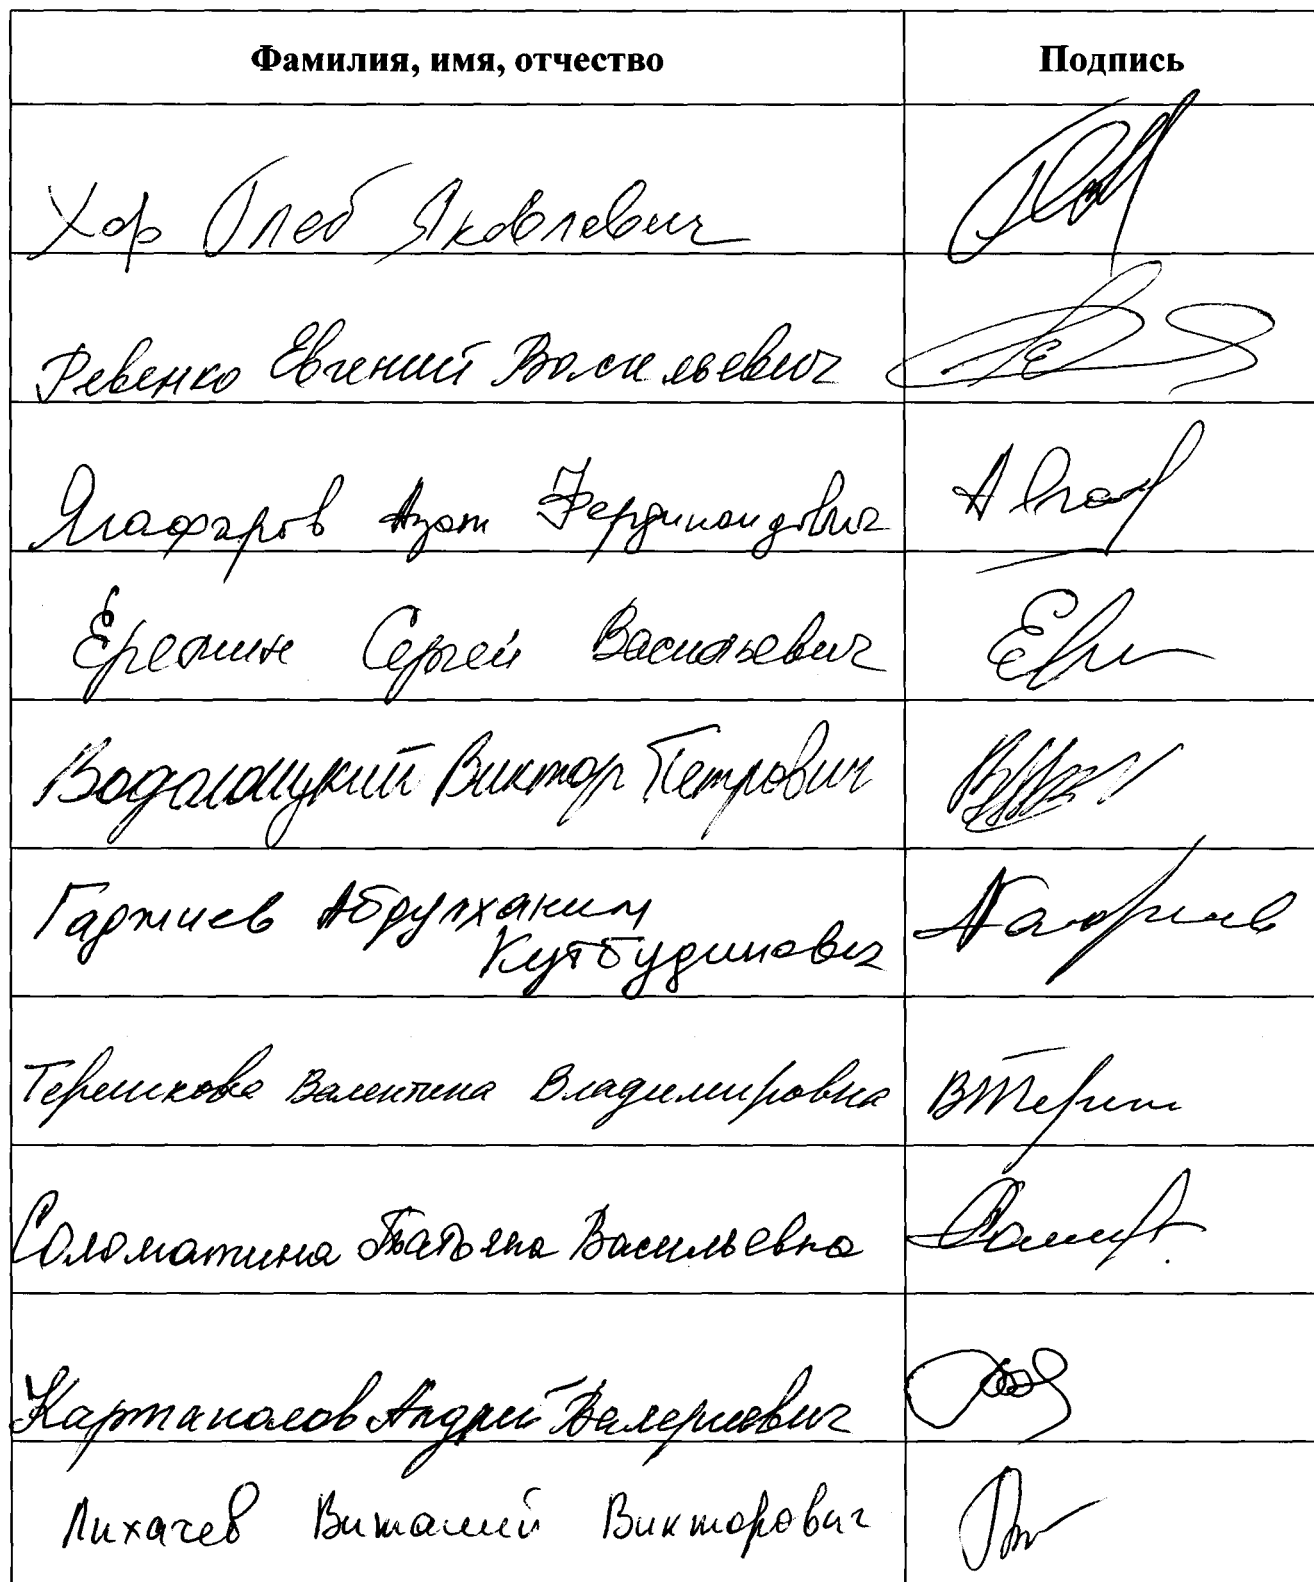 Фамилия, имя, отчество Подпись
Хор Глеб Яковлевич
Ревенко Евгений Васильевич
Ягафаров Азат Фердинандович
Ерёмин Сергей Васильевич
Водолацкий Виктор Петрович
Гаджиев Абдулхаким
Кутбудинович
Терешкова Валентина Владимировна
Соломатина Татьяна Васильевна
Картаполов Андрей Валериевич
Лихачев Виталий Викторович